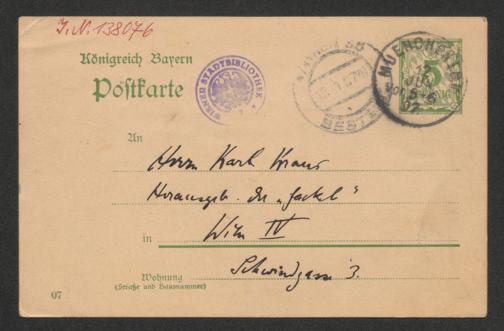 I.N. 138076
Königreich Bayern
Postkarte
WIENER STADTBIBLIOTHEK
BESTELLT
MUENCHEN
5-6
07
5
An
Herrn Karl Kraus
Herausgeb. der „Fackel“
in Wien IV
Schwindgasse 3.
Wohnung
(Straße und Hausnummer)
07